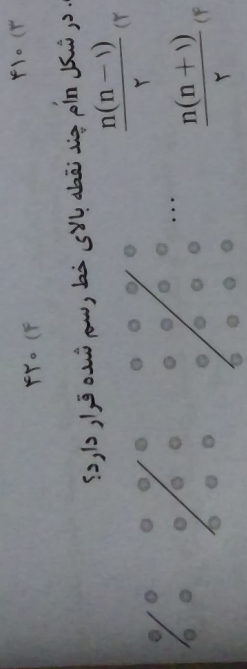 ۴۲۰ (۴
۴۱۰ (۳
در شکل nاُم چند نقطه بالای خط رسم شده قرار دارد؟
n(n − ۱)/۲ (۲
n(n + ۱)/۲ (۴
...